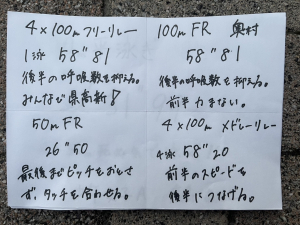 4×100m フリーリレー
1泳 58"81
後半の呼吸数を抑える。
みんなで県高新!
100m FR 奥村
58"81
後半の呼吸数を抑える。
前半力まない。
50m FR
26"50
最後までピッチをおとさ
ず、タッチを合わせる。
4×100m メドレーリレー
4泳 58"20
前半のスピードを
後半につなげる。